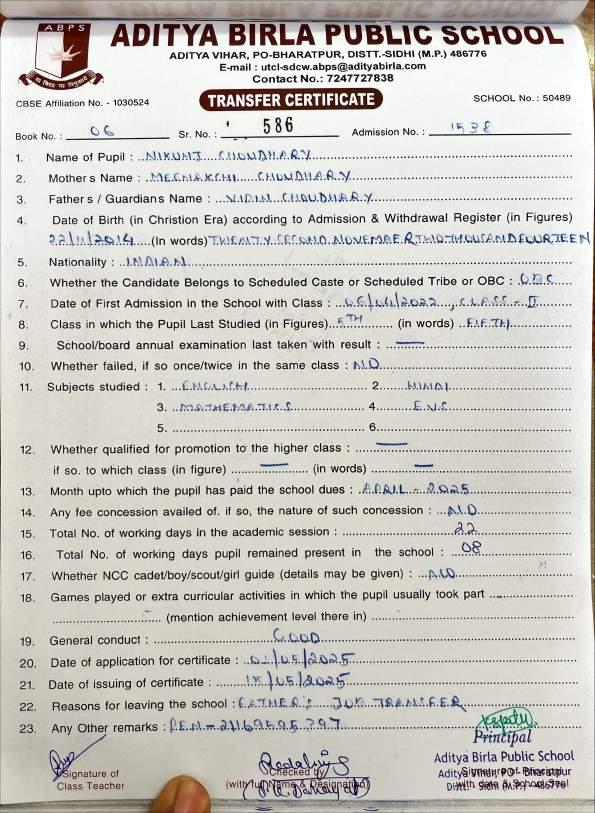 ABPS
ADITYA BIRLA PUBLIC SCHOOL
ADITYA VIHAR, PO-BHARATPUR, DISTT.-SIDHI (M.P.) 486776
E-mail : utcl-sdcw.abps@adityabirla.com
Contact No.: 7247727838
CBSE Affiliation No. - 1030524
TRANSFER CERTIFICATE
SCHOOL No. : 50489
Book No. : 06 Sr. No. : 586 Admission No. : 1538
1. Name of Pupil : NIKUNJ CHOUDHARY
2. Mother's Name : MEENAKCHI CHOUDHARY
3. Father s / Guardian's Name : VIPIN CHOUDHARY
4. Date of Birth (in Christion Era) according to Admission & Withdrawal Register (in Figures)
22/11/2014 (In words) TWENTY SECOND NOVEMBER TWO THOUSAND FOURTEEN
5. Nationality : INDIAN
6. Whether the Candidate Belongs to Scheduled Caste or Scheduled Tribe or OBC : OBC
7. Date of First Admission in the School with Class : 06/04/2022, CLASS - II
8. Class in which the Pupil Last Studied (in Figures) 5TH (in words) FIFTH
9. School/board annual examination last taken with result : —
10. Whether failed, if so once/twice in the same class : NO
11. Subjects studied : 1. ENGLISH 2. HINDI
3. MATHEMATICS 4. EVS
5. 6.
12. Whether qualified for promotion to the higher class : —
if so. to which class (in figure) — (in words) —
13. Month upto which the pupil has paid the school dues : APRIL - 2025
14. Any fee concession availed of. if so, the nature of such concession : NO
15. Total No. of working days in the academic session : 22
16. Total No. of working days pupil remained present in the school : 08
17. Whether NCC cadet/boy/scout/girl guide (details may be given) : NO
18. Games played or extra curricular activities in which the pupil usually took part
(mention achievement level there in)
19. General conduct : GOOD
20. Date of application for certificate : 01/05/2025
21. Date of issuing of certificate : 15/05/2025
22. Reasons for leaving the school : FATHER'S JOB TRANSFER
23. Any Other remarks : PEN - 21169595397
Signature of
Class Teacher
Checked by
(with full Name & Designation)
Principal
Aditya Birla Public School
Aditya Vihar, PO - Bharatpur
Distt. Sidhi (M.P.)-486776
Signature of Principal
with date & School Seal